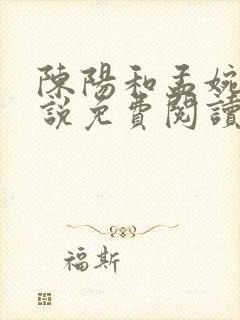 陳陽和孟婉
說免費閱讀
福斯